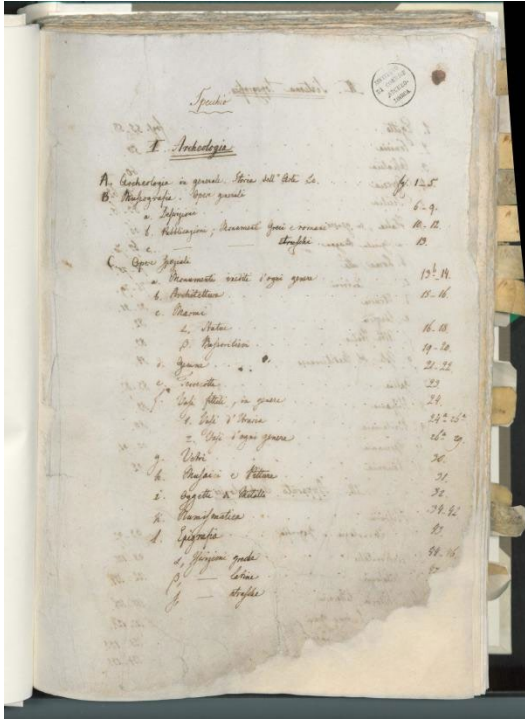 Specchio
I. Archeologia
A. Archeologia in generale, Storia dell' Arte &c. fgl. 1-5.
B. Museografia. Opere generali
a. Descrizioni 6-9.
b. Pubblicazioni; Monumenti Greci e romani 10-12.
c. — — etruschi 13.
C. Opere speciali
a. Monumenti inediti d'ogni genere 13b. 14.
b. Architettura 15-16.
c. Marmi
α. Statue 16-18.
β. Bassirilievi 19-20.
d. Gemme 21-22.
e. Terrecotte 23
f. Vasi fittili, in genere 24.
1. Vasi d'Etruria
2. Vasi d'ogni genere
g. Vetri 30.
h. Musaici e Pitture 31.
i. Oggetti di Metallo 32.
k. Numismatica
l. Epigrafia
α, Iscrizioni greche
β, — latine
γ, — etrusche